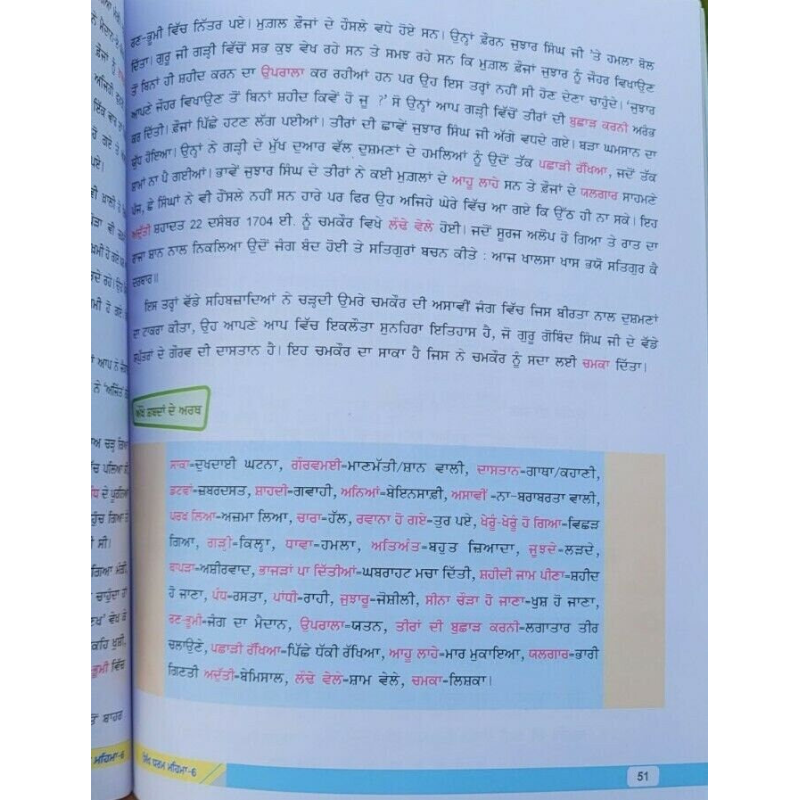 ਰਣ-ਭੂਮੀ ਵਿੱਚ ਨਿੱਤਰ ਪਏ। ਮੁਗ਼ਲ ਫ਼ੌਜਾਂ ਦੇ ਹੌਂਸਲੇ ਵਧੇ ਹੋਏ ਸਨ। ਉਨ੍ਹਾਂ ਫ਼ੌਰਨ ਜੁਝਾਰ ਸਿੰਘ ਜੀ 'ਤੇ ਹਮਲਾ ਬੋਲ
ਦਿੱਤਾ। ਗੁਰੂ ਜੀ ਗੜੀ ਵਿੱਚੋਂ ਸਭ ਕੁਝ ਵੇਖ ਰਹੇ ਸਨ ਤੇ ਸਮਝ ਰਹੇ ਸਨ ਕਿ ਮੁਗ਼ਲ ਫ਼ੌਜਾਂ ਜੁਝਾਰ ਨੂੰ ਜੌਹਰ ਵਿਖਾਉਣ
ਤੋਂ ਬਿਨਾਂ ਹੀ ਸ਼ਹੀਦ ਕਰਨ ਦਾ ਉਪਰਾਲਾ ਕਰ ਰਹੀਆਂ ਹਨ ਪਰ ਉਹ ਇਸ ਤਰ੍ਹਾਂ ਨਹੀਂ ਸੀ ਹੋਣ ਦੇਣਾ ਚਾਹੁੰਦੇ। 'ਜੁਝਾਰ
ਆਪਣੇ ਜੌਹਰ ਵਿਖਾਉਣ ਤੋਂ ਬਿਨਾਂ ਸ਼ਹੀਦ ਕਿਵੇਂ ਹੋ ਜੂ ?' ਸੋ ਉਨ੍ਹਾਂ ਆਪ ਗੜੀ ਵਿੱਚੋਂ ਤੀਰਾਂ ਦੀ ਬੁਛਾੜ ਕਰਨੀ ਅਰੰਭ
ਕਰ ਦਿੱਤੀ। ਫ਼ੌਜਾਂ ਪਿੱਛੇ ਹਟਣ ਲੱਗ ਪਈਆਂ। ਤੀਰਾਂ ਦੀ ਛਾਵੇਂ ਜੁਝਾਰ ਸਿੰਘ ਜੀ ਅੱਗੇ ਵਧਦੇ ਗਏ। ਬੜਾ ਘਮਸਾਨ ਦਾ
ਯੁੱਧ ਹੋਇਆ। ਉਨ੍ਹਾਂ ਨੇ ਗੜੀ ਦੇ ਮੁੱਖ ਦੁਆਰ ਵੱਲ ਦੁਸ਼ਮਣਾਂ ਦੇ ਹਮਲਿਆਂ ਨੂੰ ਉਦੋਂ ਤੱਕ ਪਛਾੜੀ ਰੱਖਿਆ, ਜਦੋਂ ਤੱਕ
ਸ਼ਾਮਾਂ ਨਾ ਪੈ ਗਈਆਂ। ਭਾਵੇਂ ਜੁਝਾਰ ਸਿੰਘ ਦੇ ਤੀਰਾਂ ਨੇ ਕਈ ਮੁਗ਼ਲਾਂ ਦੇ ਆਹੂ ਲਾਹੇ ਸਨ ਤੇ ਫ਼ੌਜਾਂ ਦੇ ਯਲਗਾਰ ਸਾਹਮਣੇ
ਪੰਜ, ਛੇ ਸਿੰਘਾਂ ਨੇ ਵੀ ਹੌਂਸਲੇ ਨਹੀਂ ਸਨ ਹਾਰੇ ਪਰ ਫਿਰ ਉਹ ਅਜਿਹੇ ਘੇਰੇ ਵਿੱਚ ਆ ਗਏ ਕਿ ਉੱਠ ਹੀ ਨਾ ਸਕੇ। ਇਹ
ਅਦੁੱਤੀ ਸ਼ਹਾਦਤ 22 ਦਸੰਬਰ 1704 ਈ. ਨੂੰ ਚਮਕੌਰ ਵਿਖੇ ਲੌਢੇ ਵੇਲੇ ਹੋਈ। ਜਦੋਂ ਸੂਰਜ ਅਲੋਪ ਹੋ ਗਿਆ ਤੇ ਰਾਤ ਦਾ
ਰਾਜਾ ਸ਼ਾਨ ਨਾਲ ਨਿਕਲਿਆ ਉਦੋਂ ਜੰਗ ਬੰਦ ਹੋਈ ਤੇ ਸਤਿਗੁਰਾਂ ਬਚਨ ਕੀਤੇ : ਆਜ ਖਾਲਸਾ ਖਾਸ ਭਯੋ ਸਤਿਗੁਰ ਕੈ
ਦਰਬਾਰ॥
ਇਸ ਤਰ੍ਹਾਂ ਵੱਡੇ ਸਹਿਬਜ਼ਾਦਿਆਂ ਨੇ ਚੜ੍ਹਦੀ ਉਮਰੇ ਚਮਕੌਰ ਦੀ ਅਸਾਵੀਂ ਜੰਗ ਵਿੱਚ ਜਿਸ ਬੀਰਤਾ ਨਾਲ ਦੁਸ਼ਮਣਾਂ
ਦਾ ਟਾਕਰਾ ਕੀਤਾ, ਉਹ ਆਪਣੇ ਆਪ ਵਿੱਚ ਇਕਲੌਤਾ ਸੁਨਹਿਰਾ ਇਤਿਹਾਸ ਹੈ, ਜੋ ਗੁਰੂ ਗੋਬਿੰਦ ਸਿੰਘ ਜੀ ਦੇ ਵੱਡੇ
ਸਪੁੱਤਰਾਂ ਦੇ ਗੌਰਵ ਦੀ ਦਾਸਤਾਨ ਹੈ। ਇਹ ਚਮਕੌਰ ਦਾ ਸਾਕਾ ਹੈ ਜਿਸ ਨੇ ਚਮਕੌਰ ਨੂੰ ਸਦਾ ਲਈ ਚਮਕਾ ਦਿੱਤਾ।
ਔਖੇ ਸ਼ਬਦਾਂ ਦੇ ਅਰਥ
ਸਾਕਾ-ਦੁਖਦਾਈ ਘਟਨਾ, ਗੌਰਵਮਈ-ਮਾਣਮੱਤੀ/ਸ਼ਾਨ ਵਾਲੀ, ਦਾਸਤਾਨ-ਗਾਥਾ/ਕਹਾਣੀ,
ਡਟਵਾਂ-ਜ਼ਬਰਦਸਤ, ਸ਼ਾਹਦੀ-ਗਵਾਹੀ, ਅਨਿਆਂ-ਬੇਇਨਸਾਫ਼ੀ, ਅਸਾਵੀਂ -ਨਾ-ਬਰਾਬਰਤਾ ਵਾਲੀ,
ਪਰਖ ਲਿਆ-ਅਜ਼ਮਾ ਲਿਆ, ਚਾਰਾ-ਹੱਲ, ਰਵਾਨਾ ਹੋ ਗਏ-ਤੁਰ ਪਏ, ਖੇਰੂੰ-ਖੇਰੂੰ ਹੋ ਗਿਆ-ਵਿਛੜ
ਗਿਆ, ਗੜੀ-ਕਿਲ੍ਹਾ, ਧਾਵਾ-ਹਮਲਾ, ਅਤਿਅੰਤ-ਬਹੁਤ ਜ਼ਿਆਦਾ, ਜੂਝਦੇ-ਲੜਦੇ,
ਥਾਪੜਾ-ਅਸ਼ੀਰਵਾਦ, ਭਾਜੜਾਂ ਪਾ ਦਿੱਤੀਆਂ-ਘਬਰਾਹਟ ਮਚਾ ਦਿੱਤੀ, ਸ਼ਹੀਦੀ ਜਾਮ ਪੀਣਾ-ਸ਼ਹੀਦ
ਹੋ ਜਾਣਾ, ਪੰਧ-ਰਸਤਾ, ਪਾਂਧੀ-ਰਾਹੀ, ਜੁਝਾਰੂ-ਜੋਸ਼ੀਲੀ, ਸੀਨਾ ਚੌੜਾ ਹੋ ਜਾਣਾ-ਖੁਸ਼ ਹੋ ਜਾਣਾ,
ਰਣ-ਭੂਮੀ-ਜੰਗ ਦਾ ਮੈਦਾਨ, ਉਪਰਾਲਾ-ਯਤਨ, ਤੀਰਾਂ ਦੀ ਬੁਛਾੜ ਕਰਨੀ-ਲਗਾਤਾਰ ਤੀਰ
ਚਲਾਉਣੇ, ਪਛਾੜੀ ਰੱਖਿਆ-ਪਿੱਛੇ ਧੱਕੀ ਰੱਖਿਆ, ਆਹੂ ਲਾਹੇ-ਮਾਰ ਮੁਕਾਇਆ, ਯਲਗਾਰ-ਭਾਰੀ
ਗਿਣਤੀ ਅਦੁੱਤੀ-ਬੇਮਿਸਾਲ, ਲੌਢੇ ਵੇਲੇ-ਸ਼ਾਮ ਵੇਲੇ, ਚਮਕਾ-ਲਿਸ਼ਕਾ।
ਮਹਿਮਾ-6
ਸਿੱਖ ਧਰਮ ਮਹਿਮਾ-6
51